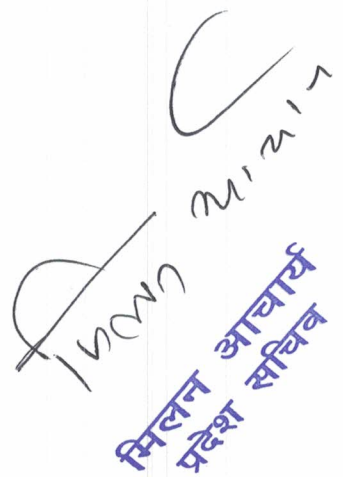 मिलन आचार्य
मिलन आचार्य
प्रदेश सचिव